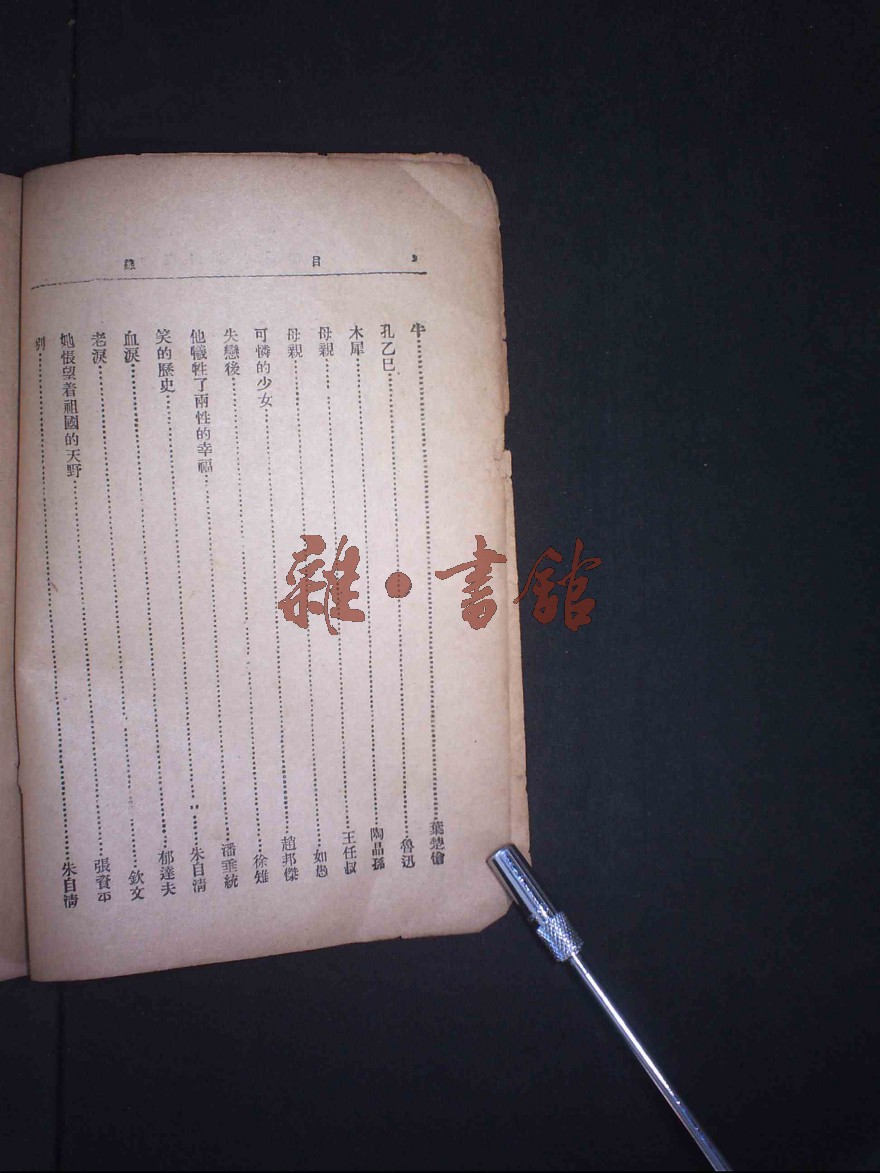 目錄
牛……葉楚傖
孔乙巳……魯迅
木犀……陶晶孫
母親……王任叔
母親……如愚
可憐的少女……趙邦傑
失戀後……徐雉
他犧牲了兩性的幸福……潘垂統
笑的歷史……朱自清
血淚……郁達夫
老淚……欽文
她悵望着祖國的天野……張資平
別……朱自清
雜·書館